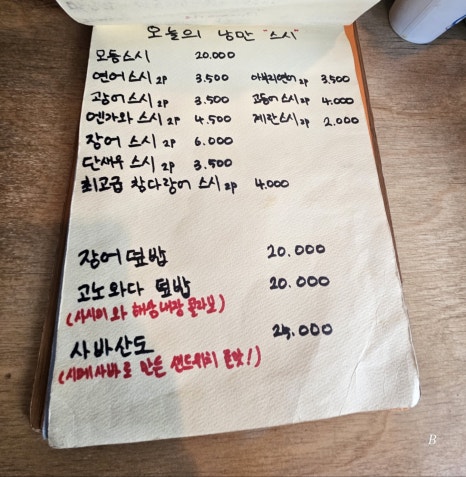 오늘의 낭만 "스시"
모둠스시 20.000
연어 스시 2P 3.500 아부리연어 2P 3.500
광어 스시 2P 3.500 고등어 스시 2P 4.000
엔가와 스시 2P 4.500 계란스시 2P 2.000
장어 스시 2P 6.000
단새우 스시 2P 3.500
최고급 참다랑어 스시 2P 4.000
장어 덮밥 20.000
고노와다 덮밥 20.000
(사시미와 해삼내장 콜라보)
사바산도 25.000
(시메사바로 만든 샌드위치 존맛!)
B